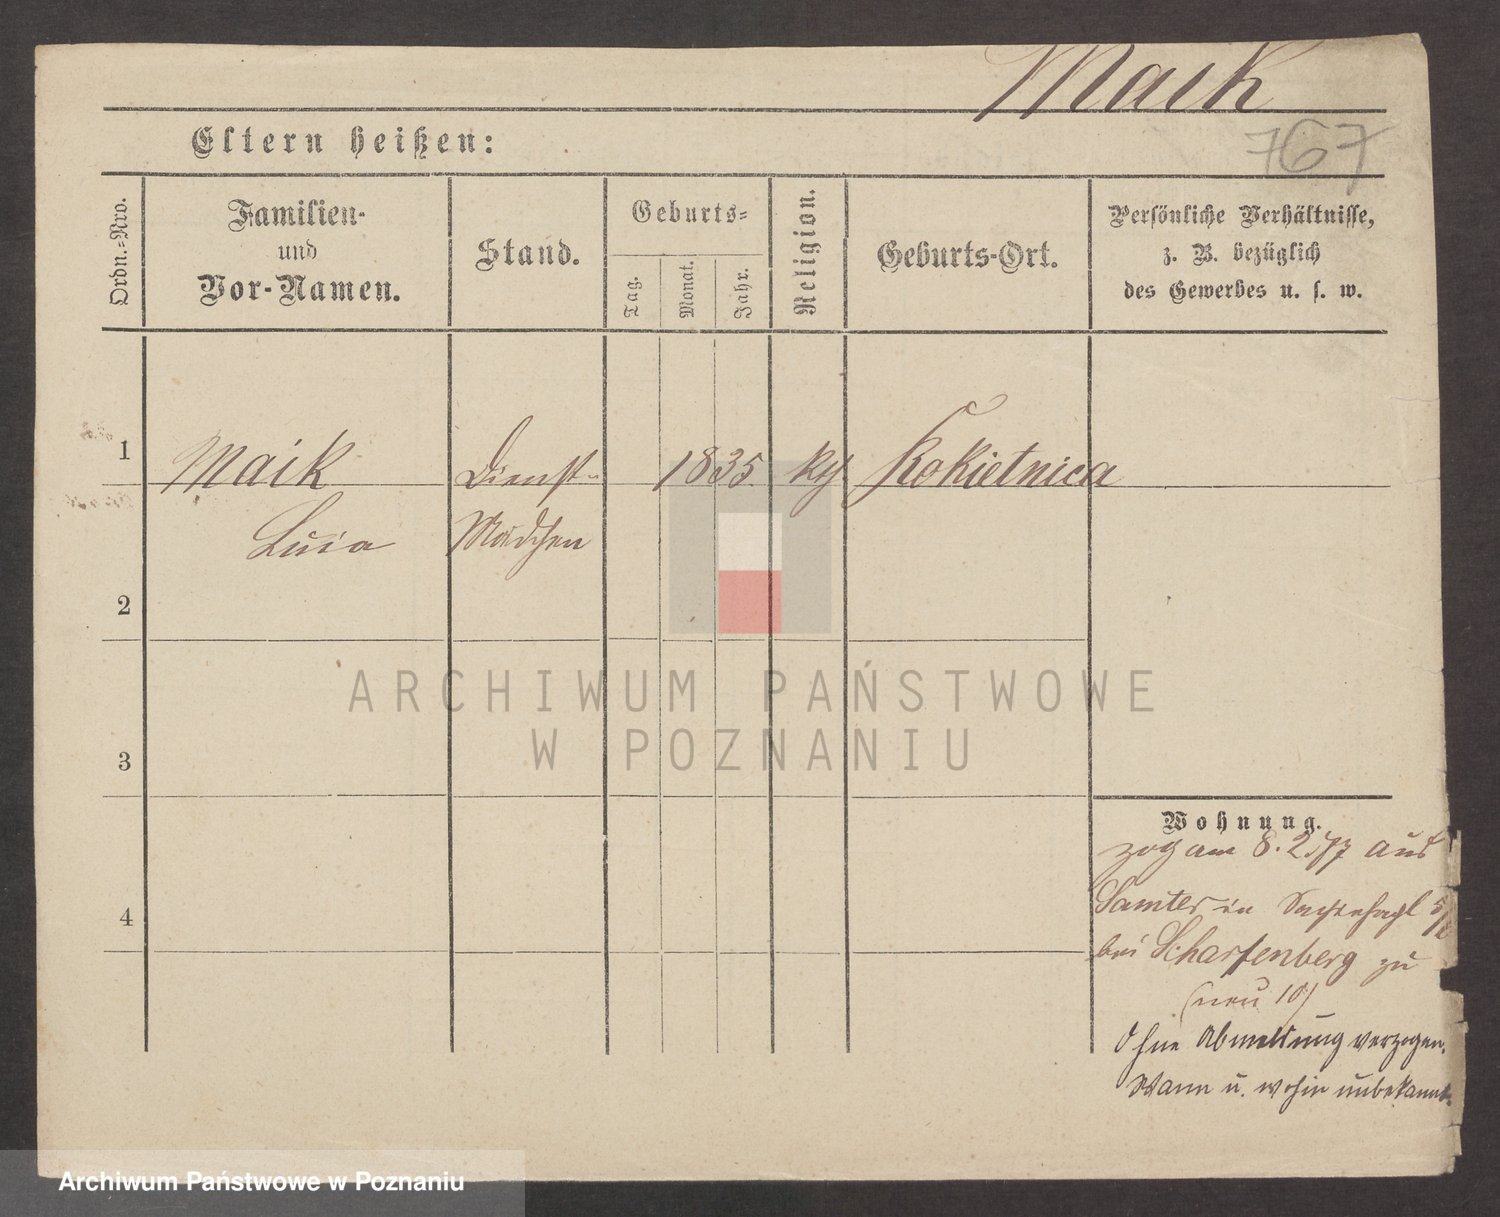 Maik
767
Eltern heißen:
Ordn.=Nro.
Familien-
und
Vor-Namen.
Stand.
Geburts=
Tag.
Monat.
Jahr.
Religion.
Geburts-Ort.
Persönliche Verhältnisse,
z. B. bezüglich
des Gewerbes u. s. w.
1
Maik
Dienst-
1835.
Rokietnica
Luia
Mädchen
2
3
4
Wohnung.
zog am 8.2.77 aus
Samter in
bei Scharfenberg zu
(neu 10)
Ohne Abmeldung verzogen.
Wann u. wohin unbekannt.
ARCHIWUM PAŃSTWOWE
W POZNANIU
Archiwum Państwowe w Poznaniu